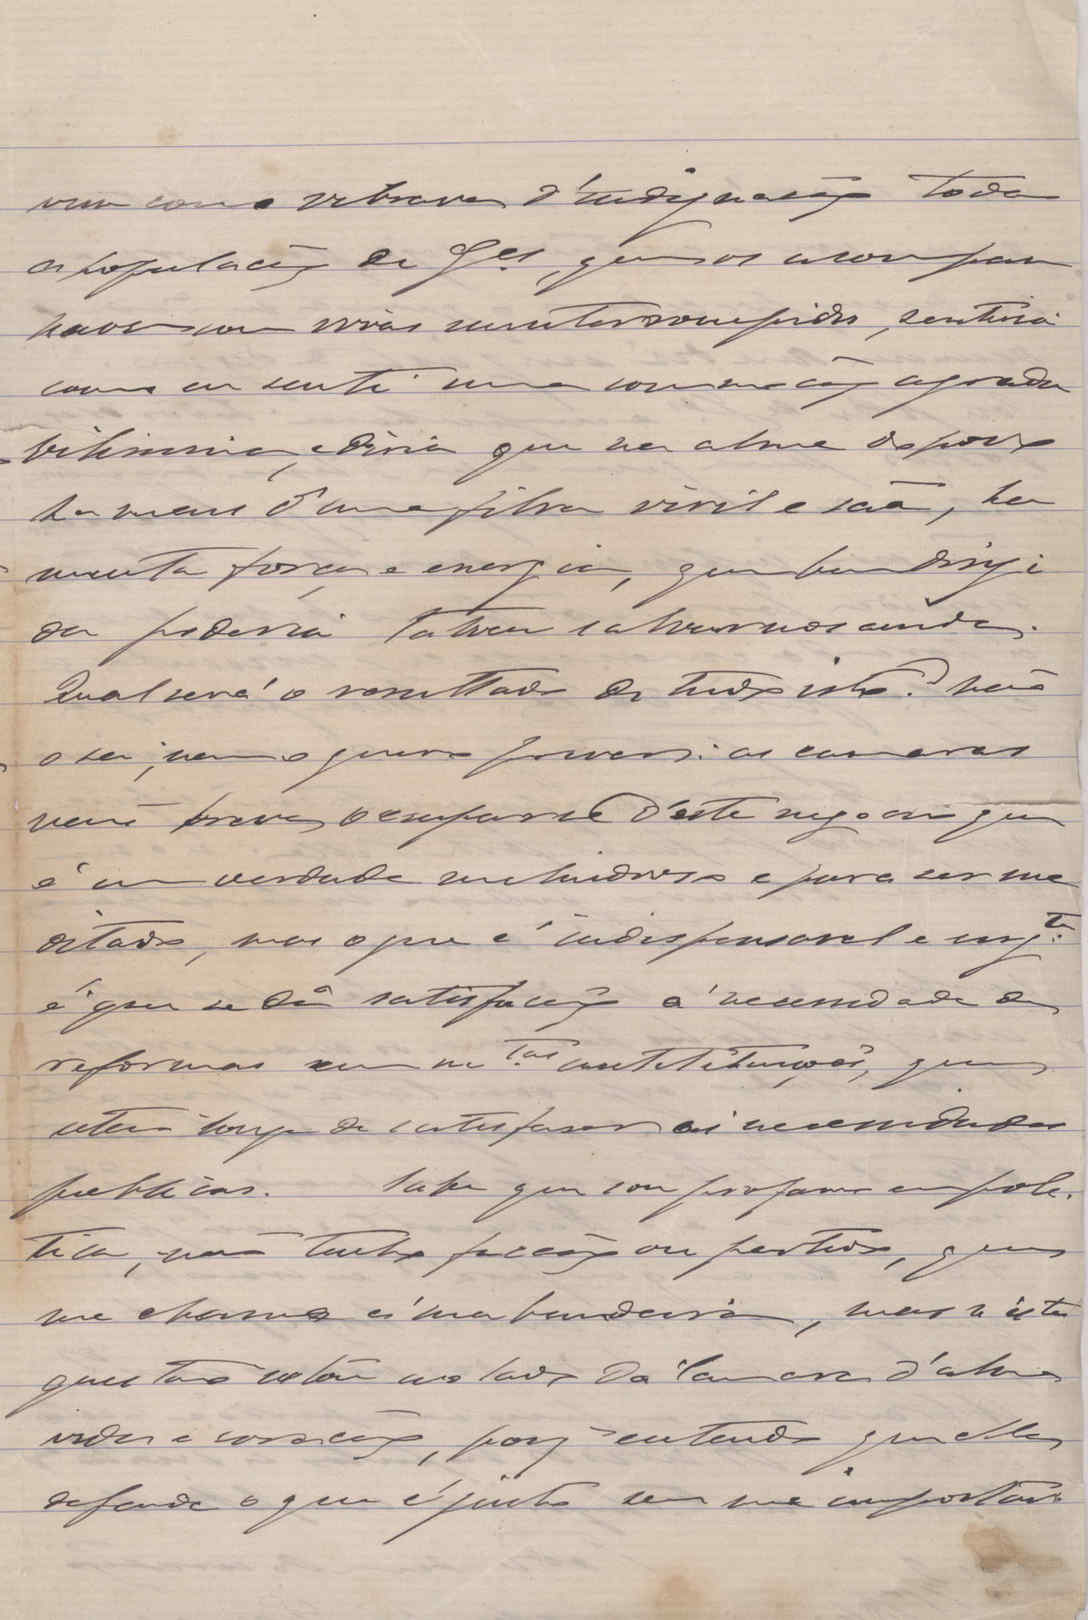 viu como vibrava d'indignação toda
a população de G.es, que os acompa
nhava com vivas ininterrompidos, sentiria
como eu senti uma commoção agrada
bilissima, e diria que na alma do povo
ha mais d'uma fibra viril e sã, ha
muita força e energia, que bem dirigi
da poderia talvez salvar-nos ainda.
Qual será o resultado de tudo isto? Não
o sei, nem o quero prever: as camaras
vão breve occupar-se d'este negocio que
é em verdade melindroso e para ser me
ditado, mas o que é indispensavel e urg.te
é que se dê satisfação á necessidade de
reformas em m.tas instituições, que
estão longe de satisfazer ás necessidades
publicas. Sabe que sou profano em poli-
tica, não tenho facção ou partido, que
me chame á sua bandeira, mas n'esta
questão estou ao lado da Camara d'alma
vida e coração, porq entendo que ella
defende o que é justo sem me importar